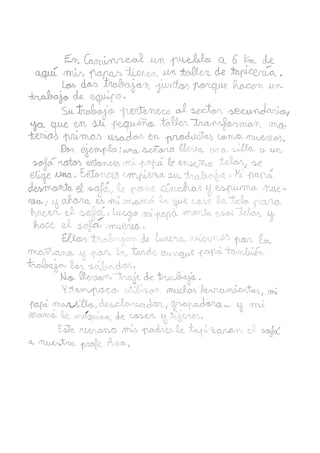 En Caminreal un pueblo a 6 Km de
aquí mis papas tienen un taller de tapicería.
Los dos trabajan juntos porque hacen un
trabajo de equipo.
Su trabajo pertenece al sector secundario,
ya que en su pequeño taller transforman ma-
terias primas usados en productos como nuevos.
Por ejemplo: una señora lleva una silla o un
sofá rotos entonces mi papá le enseña telas, se
elige una. Entonces empieza su trabajo. Mi papá
desmonta el sofá, le pone cinchas y espuma nue-
va, y ahora es mi mamá la que cose la tela para
hacer el sofá. Luego mi papá monta esas telas y
hace el sofá nuevo.
Ellos trabajan de lunes a viernes por la
mañana y por la tarde aunque papá también
trabaja los sábados.
No llevan traje de trabajo.
Y tampoco utilizan muchas herramientas, mi
papá martillo, desclavador, grapadora... y mi
mamá la máquina de coser y tijeras.
Este verano mis padres le tapizaron el sofá
a nuestra profe Ana.